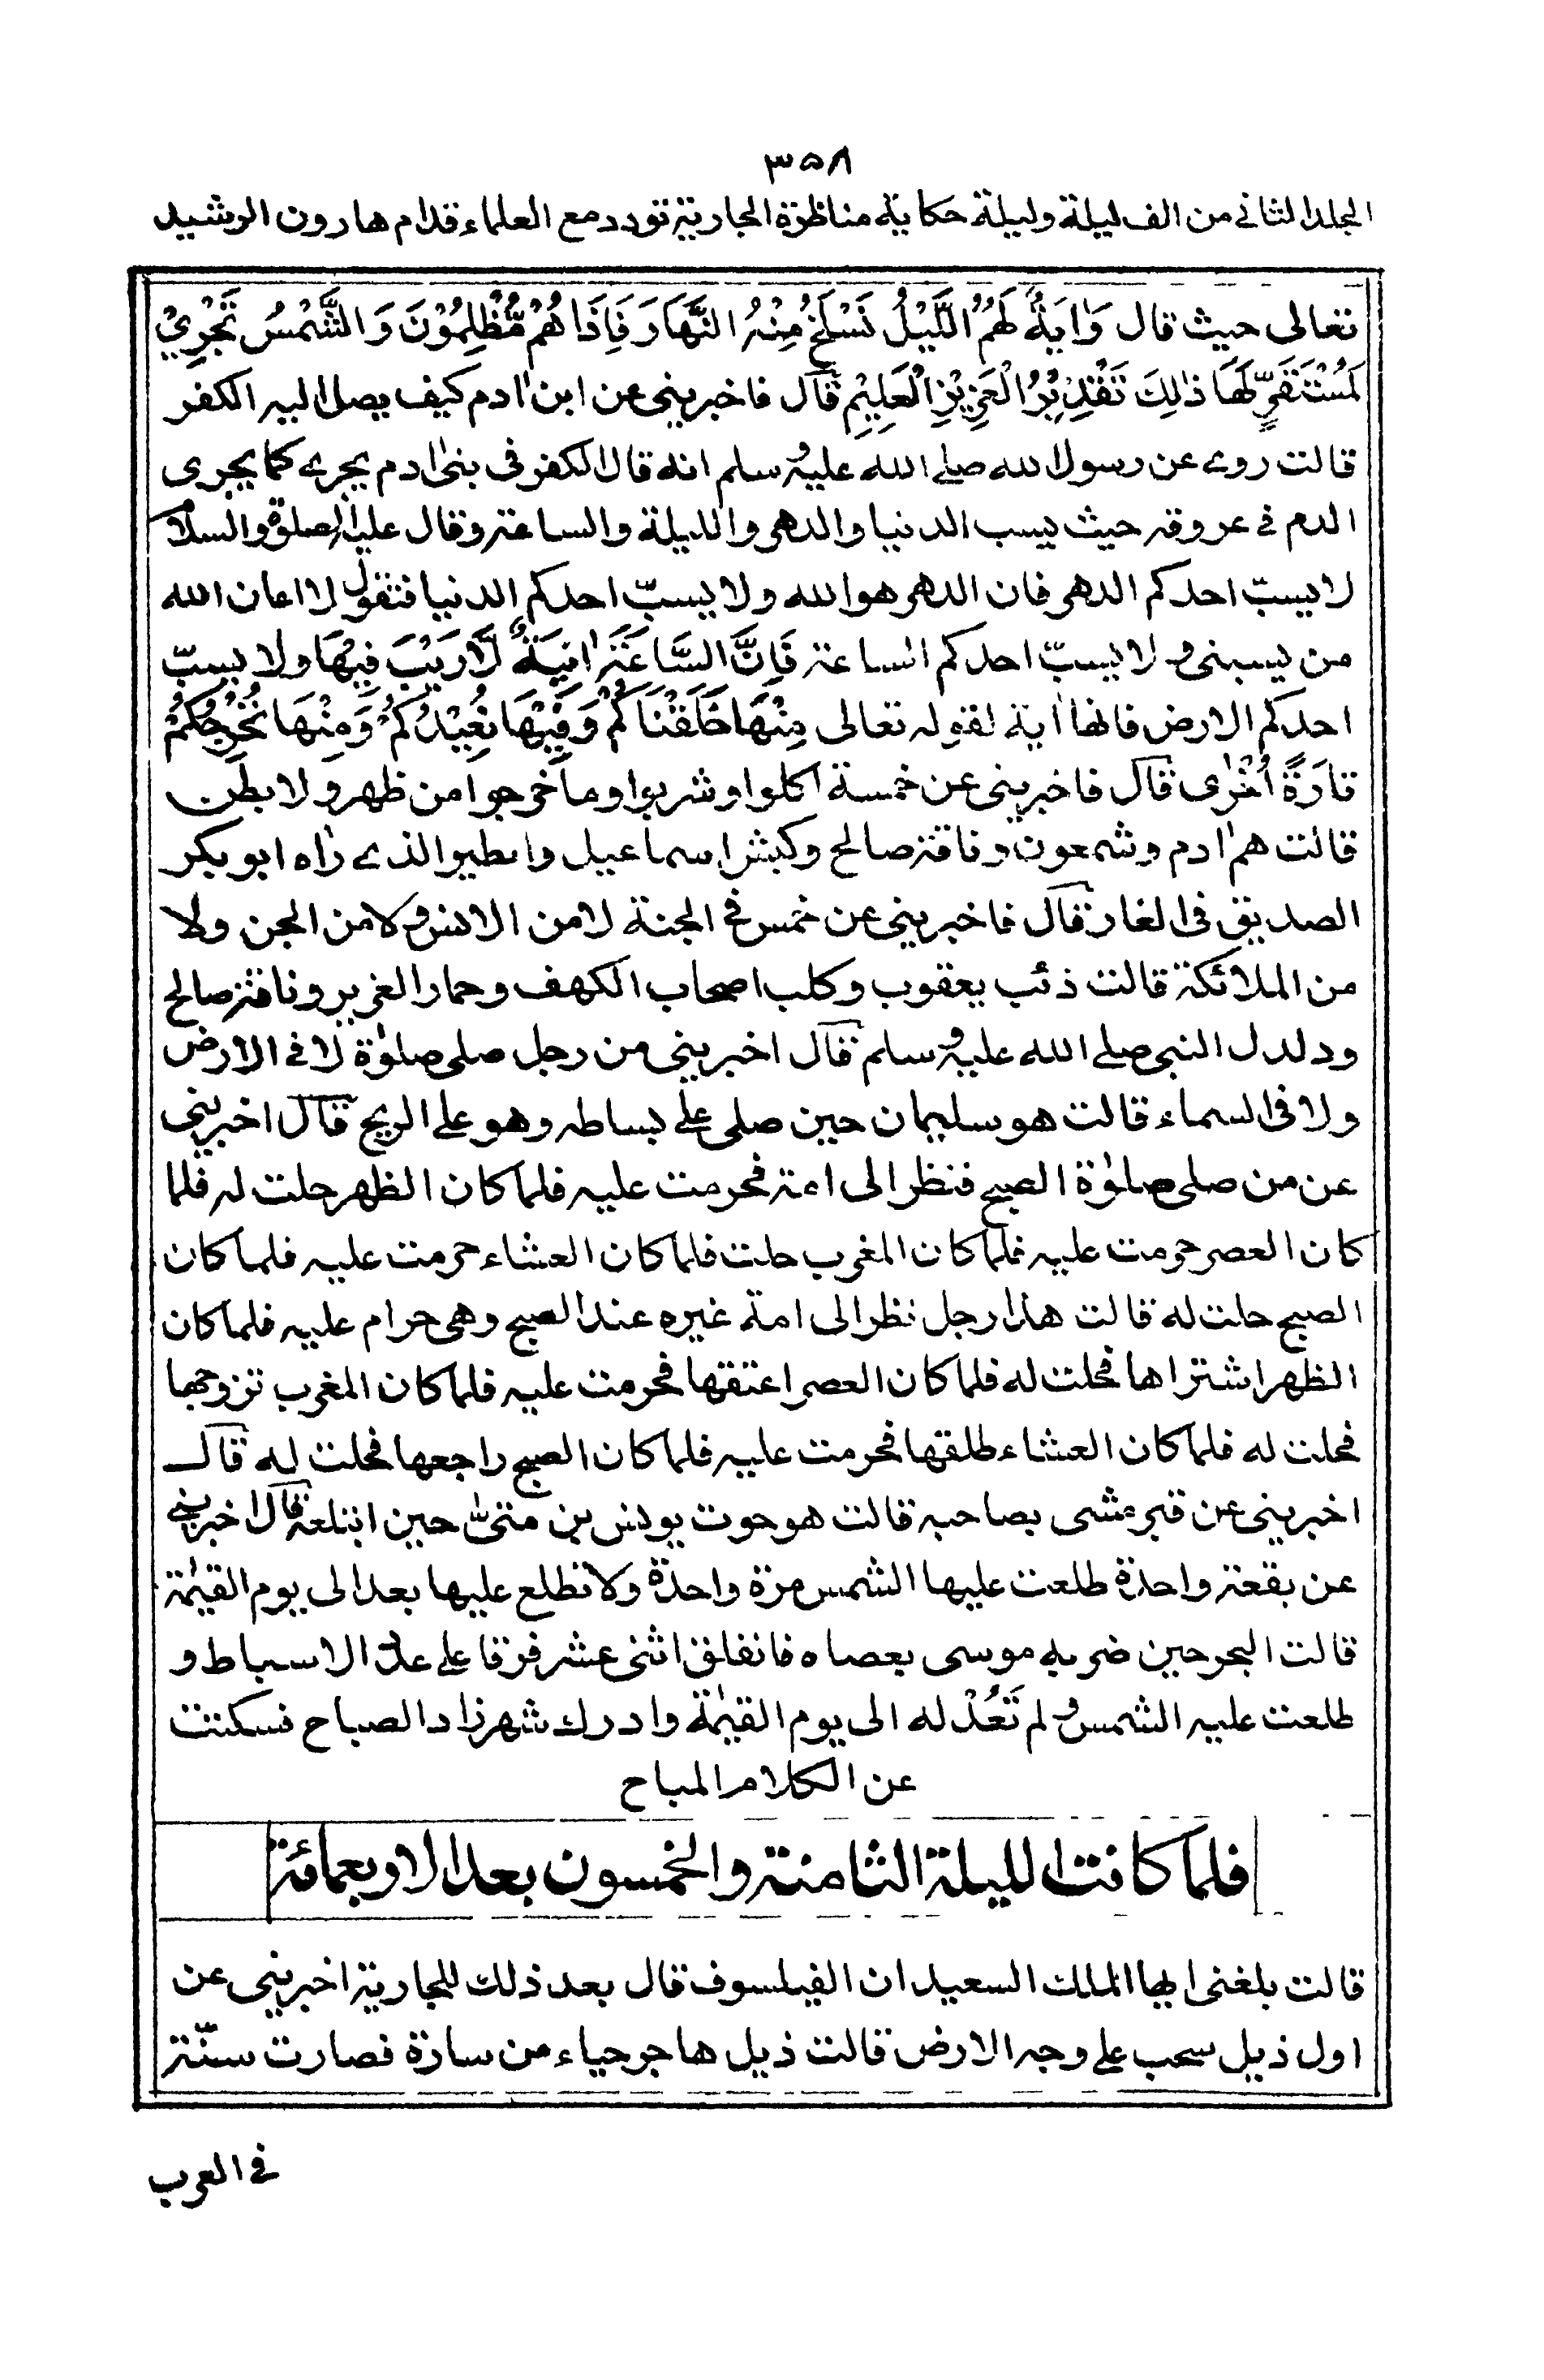 ٣٥٨
المجلد الثاني من الف ليلة وليلة حكاية مناظرة الجارية تودد مع العلماء قدام هارون الرشيد
تعالى حيث قال وَاٰيَةٌ لَهُمُ اللَّيْلُ نَسْلَخُ مِنْهُ النَّهَارَ فَاِذَا هُمْ مُّظْلِمُوْنَ وَالشَّمْسُ تَجْرِيْ
لِمُسْتَقَرٍّ لَهَا ذٰلِكَ تَقْدِيْرُ الْعَزِيْزِ الْعَلِيْمِ قال فاخبريني عن ابن اٰدم كيف يصل اليه الكفر
قالت روے عن رسول الله صلے الله عليه وسلم انه قال الكفر فى بنى اٰدم يجرے كما يجرى
الدم فے عروقه حيث يسب الدنيا والدهر والليلة والساعة وقال عليه الصلوة والسلام
لا يسبّ احدكم الدهر فان الدهر هو الله ولا يسبّ احدكم الدنيا فتقول لا اعان الله
من يسبنى ولا يسبّ احدكم الساعة فَاِنَّ السَّاعَةَ اٰتِيَةٌ لَّارَيْبَ فِيْهَا ولا يسبّ
احدكم الارض فانها اٰية لقوله تعالى مِنْهَا خَلَقْنَاكُمْ وَفِيْهَا نُعِيْدُكُمْ وَمِنْهَا نُخْرِجُكُمْ
تَارَةً اُخْرٰى قال فاخبريني عن خمسة اكلوا وشربوا وما خرجوا من ظهر ولا بطن
قالت هم اٰدم وشمعون وناقة صالح وكبش اسماعيل والطير الذے راٰه ابو بكر
الصديق فى الغار قال فاخبريني عن خمس فے الجنة لا من الانس ولا من الجن ولا
من الملائكة قالت ذئب يعقوب وكلب اصحاب الكهف وحمار العزير وناقة صالح
ودلدل النبى صلے الله عليه وسلم قال اخبريني من رجل صلى صلوٰة لا فے الارض
ولا فى السماء قالت هو سليمان حين صلى علے بساطه وهو علے الريح قال اخبريني
عن من صلى صلوٰة الصبح فنظر الى امة فحرمت عليه فلما كان الظهر حلت له فلما
كان العصر حرمت عليه فلما كان المغرب حلت فلما كان العشاء حرمت عليه فلما كان
الصبح حلت له قالت هذا رجل نظر الى امة غيره عند الصبح وهى حرام عليه فلما كان
الظهر اشتراها فحلت له فلما كان العصر اعتقها فحرمت عليه فلما كان المغرب تزوجها
فحلت له فلما كان العشاء طلقها فحرمت عليه فلما كان الصبح راجعها فحلت له قال
اخبريني عن قبر مشى بصاحبه قالت هو حوت يونس بن متىٰ حين ابتلعه قال اخبرينے
عن بقعة واحدة طلعت عليها الشمس مرة واحدة ولا تطلع عليها بعد الى يوم القيٰمة
قالت البحر حين ضربه موسى بعصاه فانفلق اثنى عشر فرقا علے عدد الاسباط و
طلعت عليه الشمس ولم تَعُدْ له الى يوم القيٰمة وادرك شهرزاد الصباح فسكتت
عن الكلام المباح
فلما كانت الليلة الثامنة والخمسون بعد الاربعمائة
قالت بلغنى ايها الملك السعيد ان الفيلسوف قال بعد ذلك للجارية اخبريني عن
اول ذيل سحب علے وجه الارض قالت ذيل هاجر حياء من سارة فصارت سنّة
فے العرب